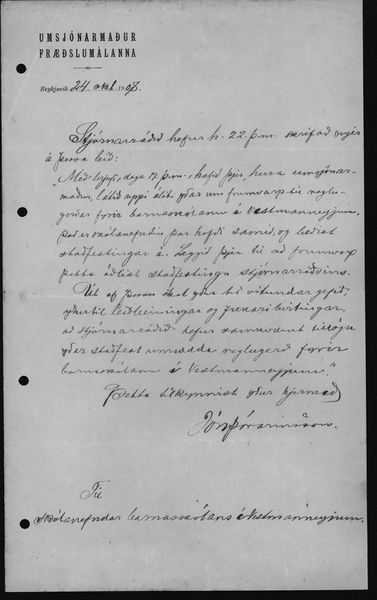 UMSJÓNARMAÐUR
FRÆÐSLUMÁLANNA
Reykjavík 24. okt. 1907.
Stjórnarráðið hefur h. 22. þ.m. skrifað mjer
á þessa leið:
"Með brjefi, dags. 17. þ.m., hafið þjer, herra umsjónar-
maður, látið uppi álit yðar um frumvarp til reglu-
gerðar fyrir barnaskólann á Vestmannaeyjum,
það er skólanefndin þar hefði samið, og beðist
staðfestingar á. Leggið þjer til að frumvarp
þetta öðlist staðfesting stjórnarráðsins.
Út af þessu skal yður til vitundar gefið,
yður til leiðbeiningar og frekari birtingar,
að stjórnarráðið hefur samkvæmt tillögu
yðar staðfest umrædda reglugerð fyrir
barnaskólann á Vestmannaeyjum."
Þetta tilkynnist yður hjermeð
Jón Þórarinsson.
Til
skólanefndar barnaskólans á Vestmannaeyjum.